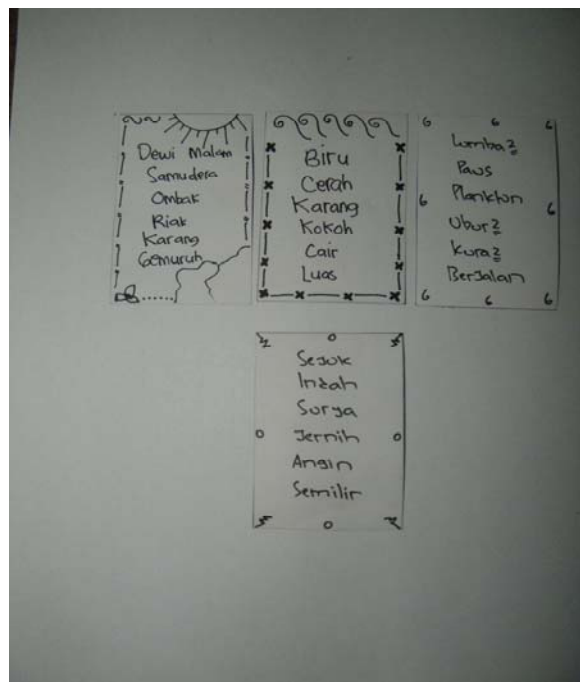 Dewi Malam
Samudera
Ombak
Riak
Karang
Gemuruh
Biru
Cerah
Karang
Kokoh
Cair
Luas
Lumba2
Paus
Plankton
Ubur2
Kura2
Berjalan
Sejuk
Indah
Surya
Jernih
Angin
Semilir